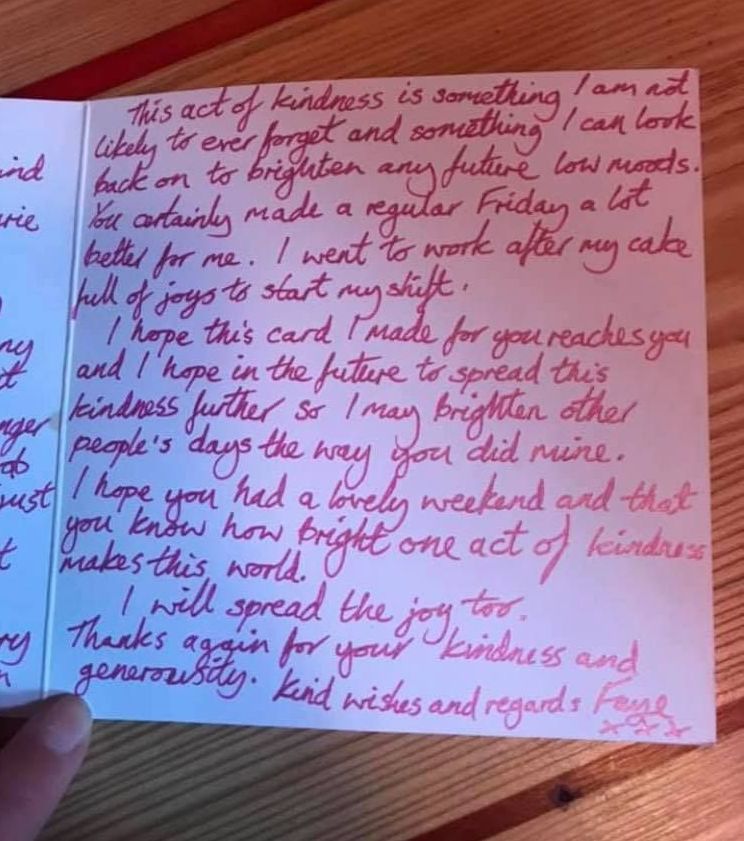 ind
rie
ny
t
nger
ob
just
t
ry
n
This act of kindness is something I am not
likely to ever forget and something I can look
back on to brighten any future low moods.
You certainly made a regular Friday a lot
better for me. I went to work after my cake
full of joys to start my shift.
I hope this card I made for you reaches you
and I hope in the future to spread this
kindness further so I may brighten other
people's days the way you did mine.
I hope you had a lovely weekend and that
you know how bright one act of kindness
makes this world.
I will spread the joy too.
Thanks again for your kindness and
generousity. Kind wishes and regards Faye
xxx